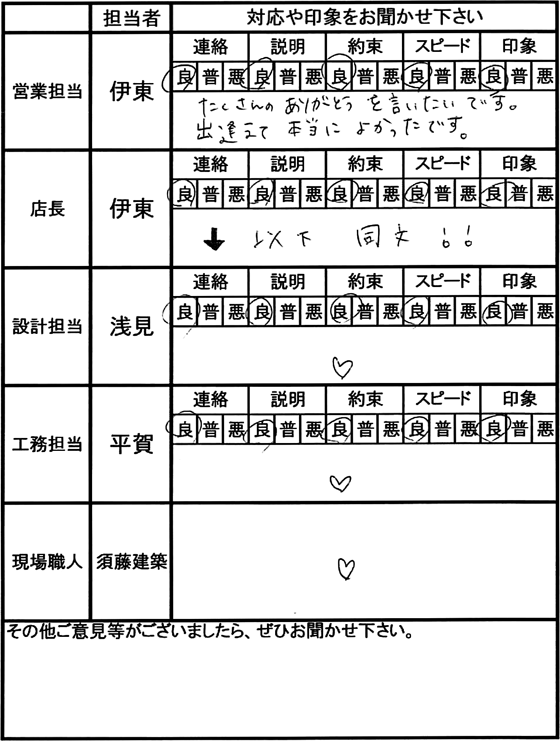 担当者 対応や印象をお聞かせ下さい
営業担当 伊東
連絡 説明 約束 スピード 印象
良 普 悪 良 普 悪 良 普 悪 良 普 悪 良 普 悪
たくさんの ありがとう を言いたいです。
出逢えて 本当に よかったです。
店長 伊東
連絡 説明 約束 スピード 印象
良 普 悪 良 普 悪 良 普 悪 良 普 悪 良 普 悪
↓ 以下 同文 !!
設計担当 浅見
連絡 説明 約束 スピード 印象
良 普 悪 良 普 悪 良 普 悪 良 普 悪 良 普 悪
♡
工務担当 平賀
連絡 説明 約束 スピード 印象
良 普 悪 良 普 悪 良 普 悪 良 普 悪 良 普 悪
♡
現場職人 須藤建築
♡
その他ご意見等がございましたら、ぜひお聞かせ下さい。